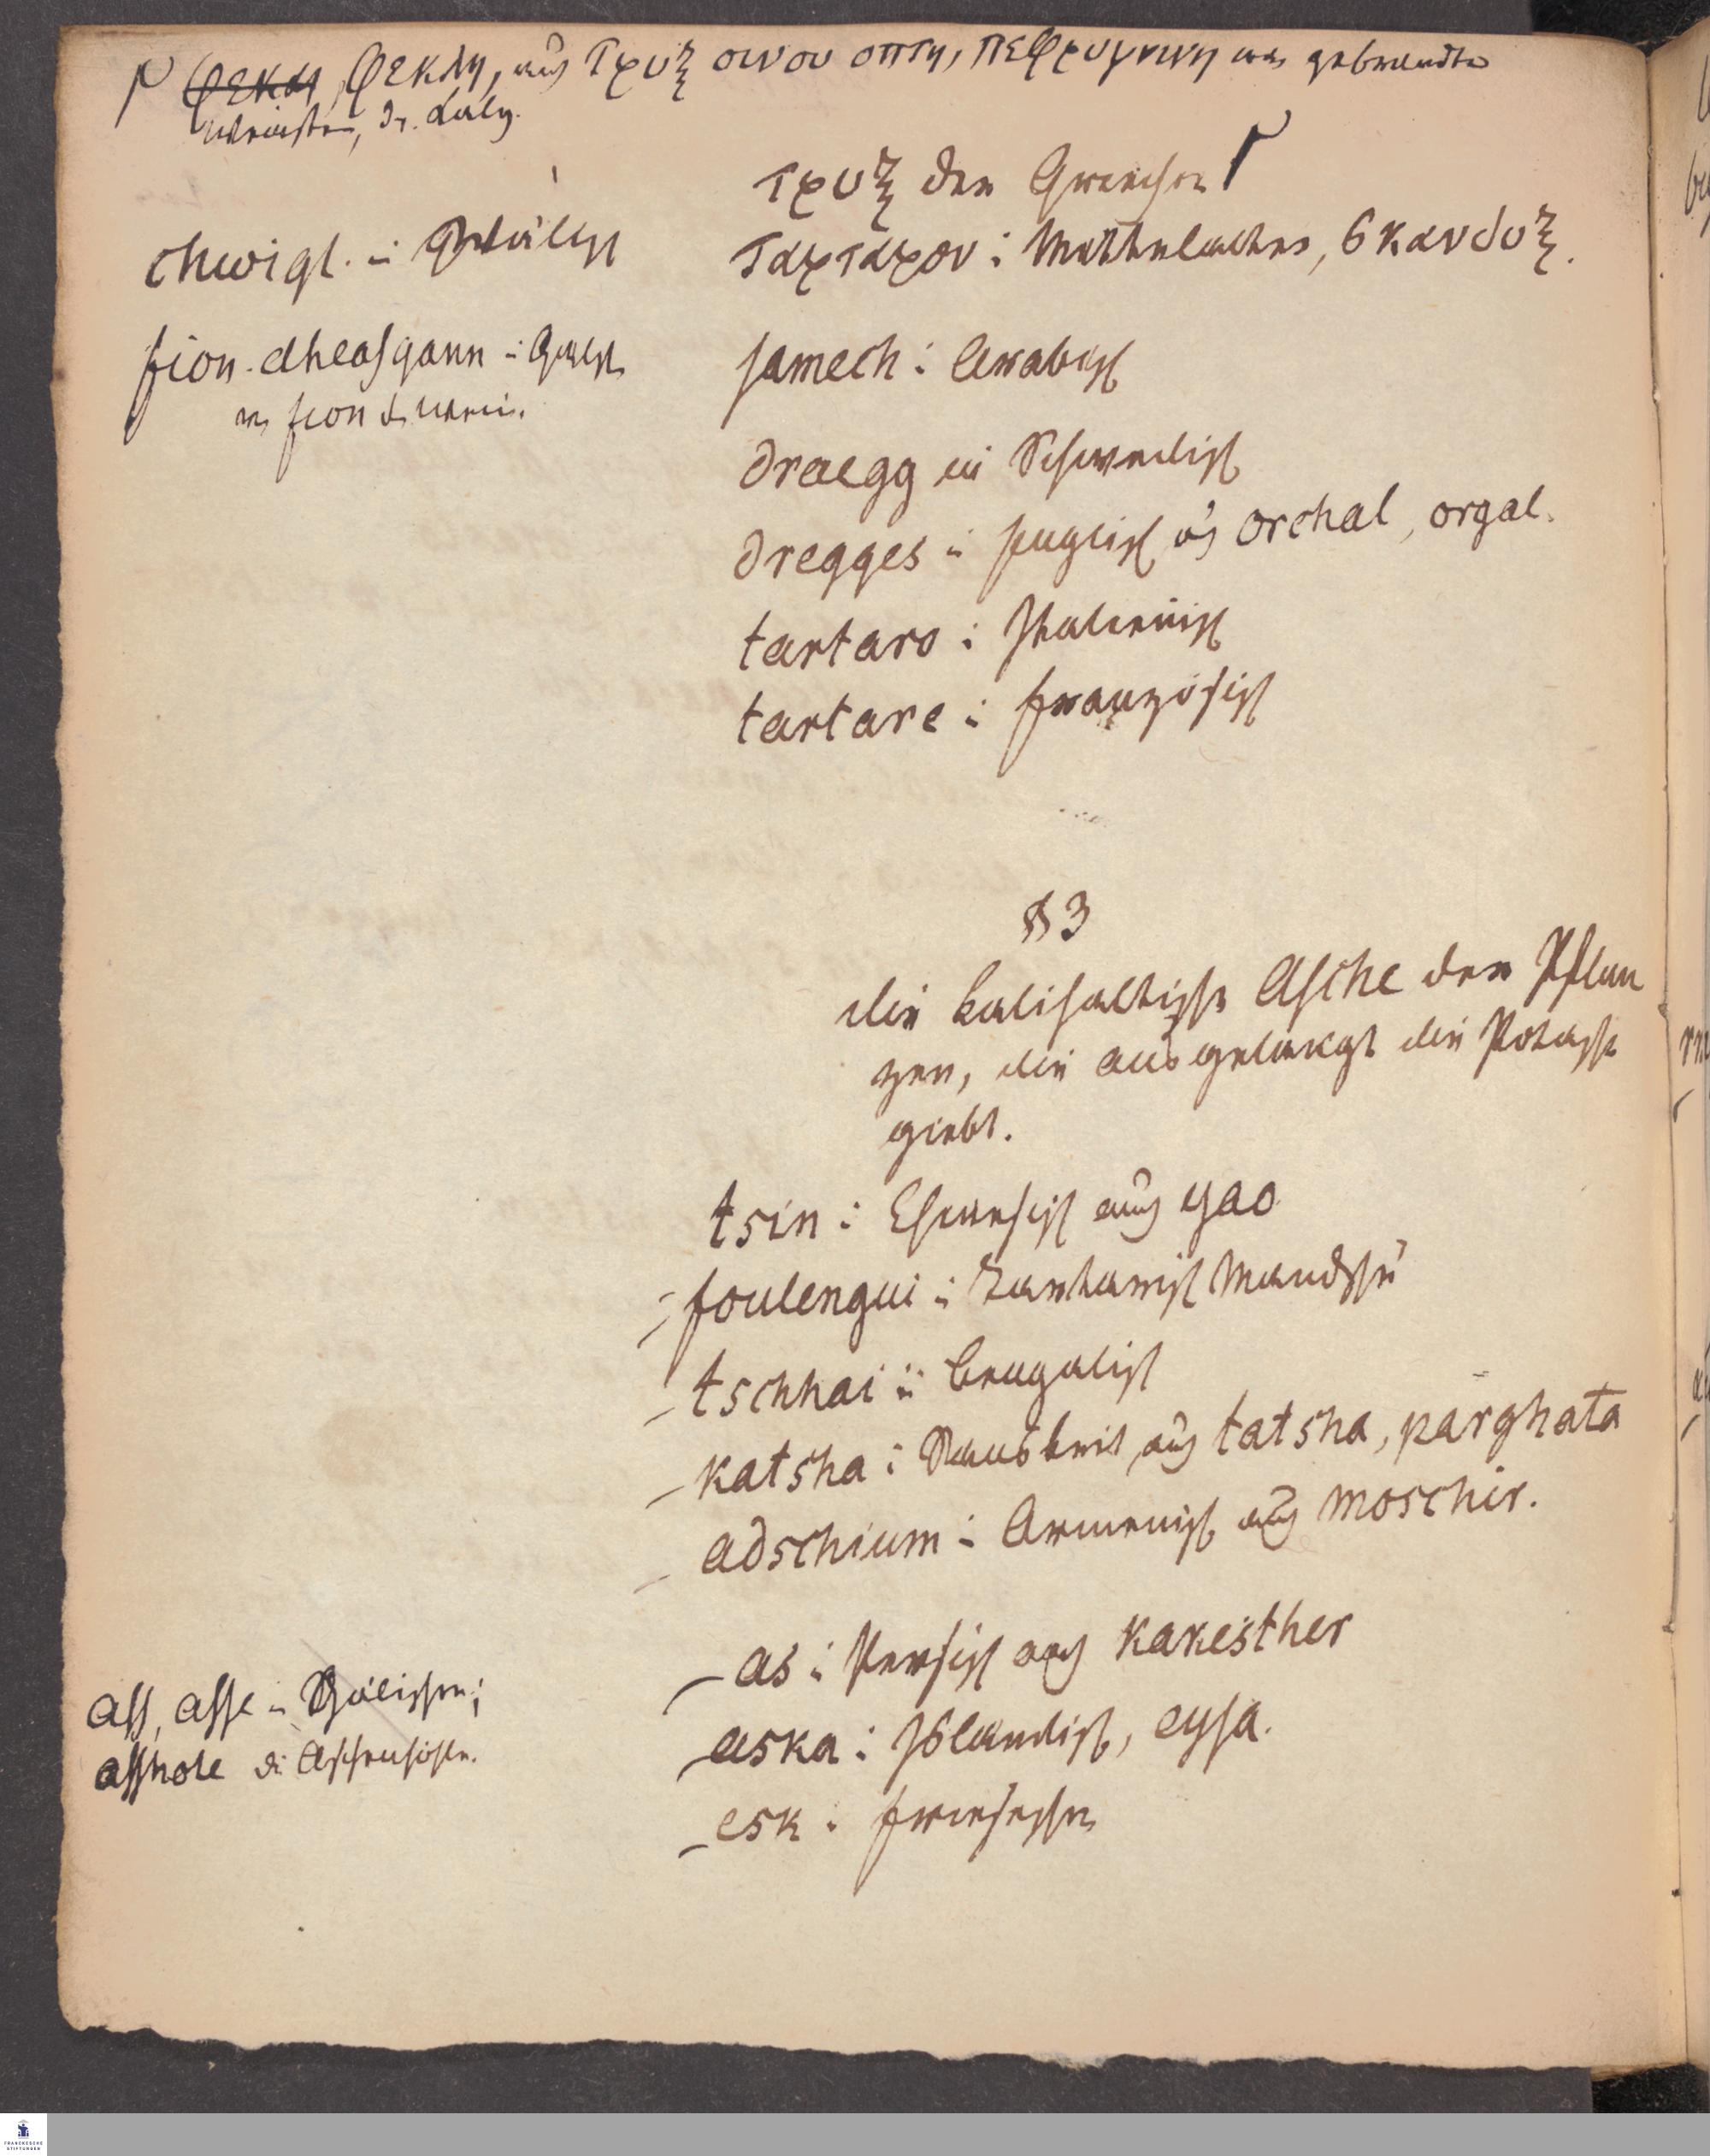 φεκλη, auch τρυξ οινου οπτη, πεφρυγμενη gebrandter
Weinstein,
τρυξ der Griechen
chwigl. i Wälsch
ταρταρον i Mittelalter, σκανδυξ.
fion-dheasgann i Gaelisch
fion Wein.
samech i Arabisch
draegg im Schwedisch
dregges i Englisch orchal, orgal.
tartaro i Italienisch
tartare i französisch
§ 3
die kalihaltige Asche der Pflan
zen, die ausgelaugt die Potasche
giebt.
tsin i Chinesisch auch yao
- foulengui i Tartarisch Mandschu
- tschhai i Bengalisch
- katsha i Sanskrit auch tatsha, parghata
- adschium i Armenisch auch moschir.
- as i Persisch auch kakesther
ass, asse i
- aska i Isländisch, eysa.
asshole
- esk i friesischen
FRANCKESCHE
STIFTUNGEN